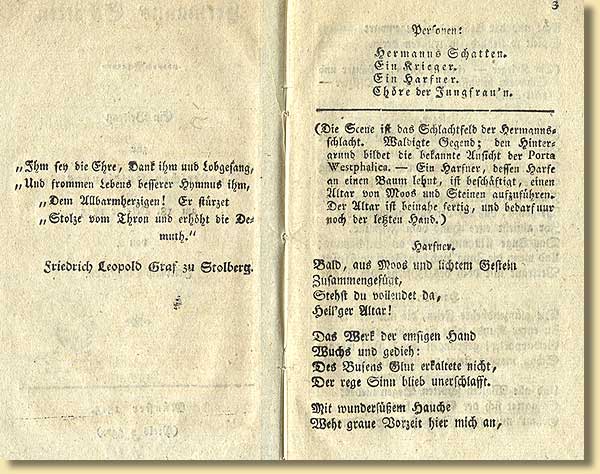 „Ihm sey die Ehre, Dank ihm und Lobgesang,
„Und frommen Lebens besserer Hymnus ihm,
„Dem Allbarmherzigen! Er stürzet
„Stolze vom Thron und erhöht die De-
muth.“
Friedrich Leopold Graf zu Stolberg.
3
Personen:
Hermanns Schatten.
Ein Krieger.
Ein Harfner.
Chöre der Jungfrau'n.
(Die Scene ist das Schlachtfeld der Hermanns-
schlacht. Waldigte Gegend; den Hinter-
grund bildet die bekannte Ansicht der Porta
Westphalica. — Ein Harfner, dessen Harfe
an einen Baum lehnt, ist beschäftigt, einen
Altar von Moos und Steinen aufzuführen.
Der Altar ist beinahe fertig, und bedarf nur
noch der letzten Hand.)
Harfner.
Bald, aus Moos und lichtem Gestein
Zusammengefügt,
Stehst du vollendet da,
Heil'ger Altar!
Das Werk der emsigen Hand
Wuchs und gedieh:
Des Busens Glut erkaltete nicht,
Der rege Sinn blieb unerschlafft.
Mit wundersüßem Hauche
Weht graue Vorzeit hier mich an,